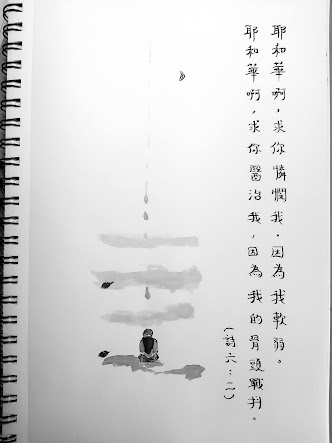 耶和華啊，求你憐憫我，因為我軟弱。
耶和華啊，求你醫治我，因為我的骨頭戰抖。
（詩六：二）